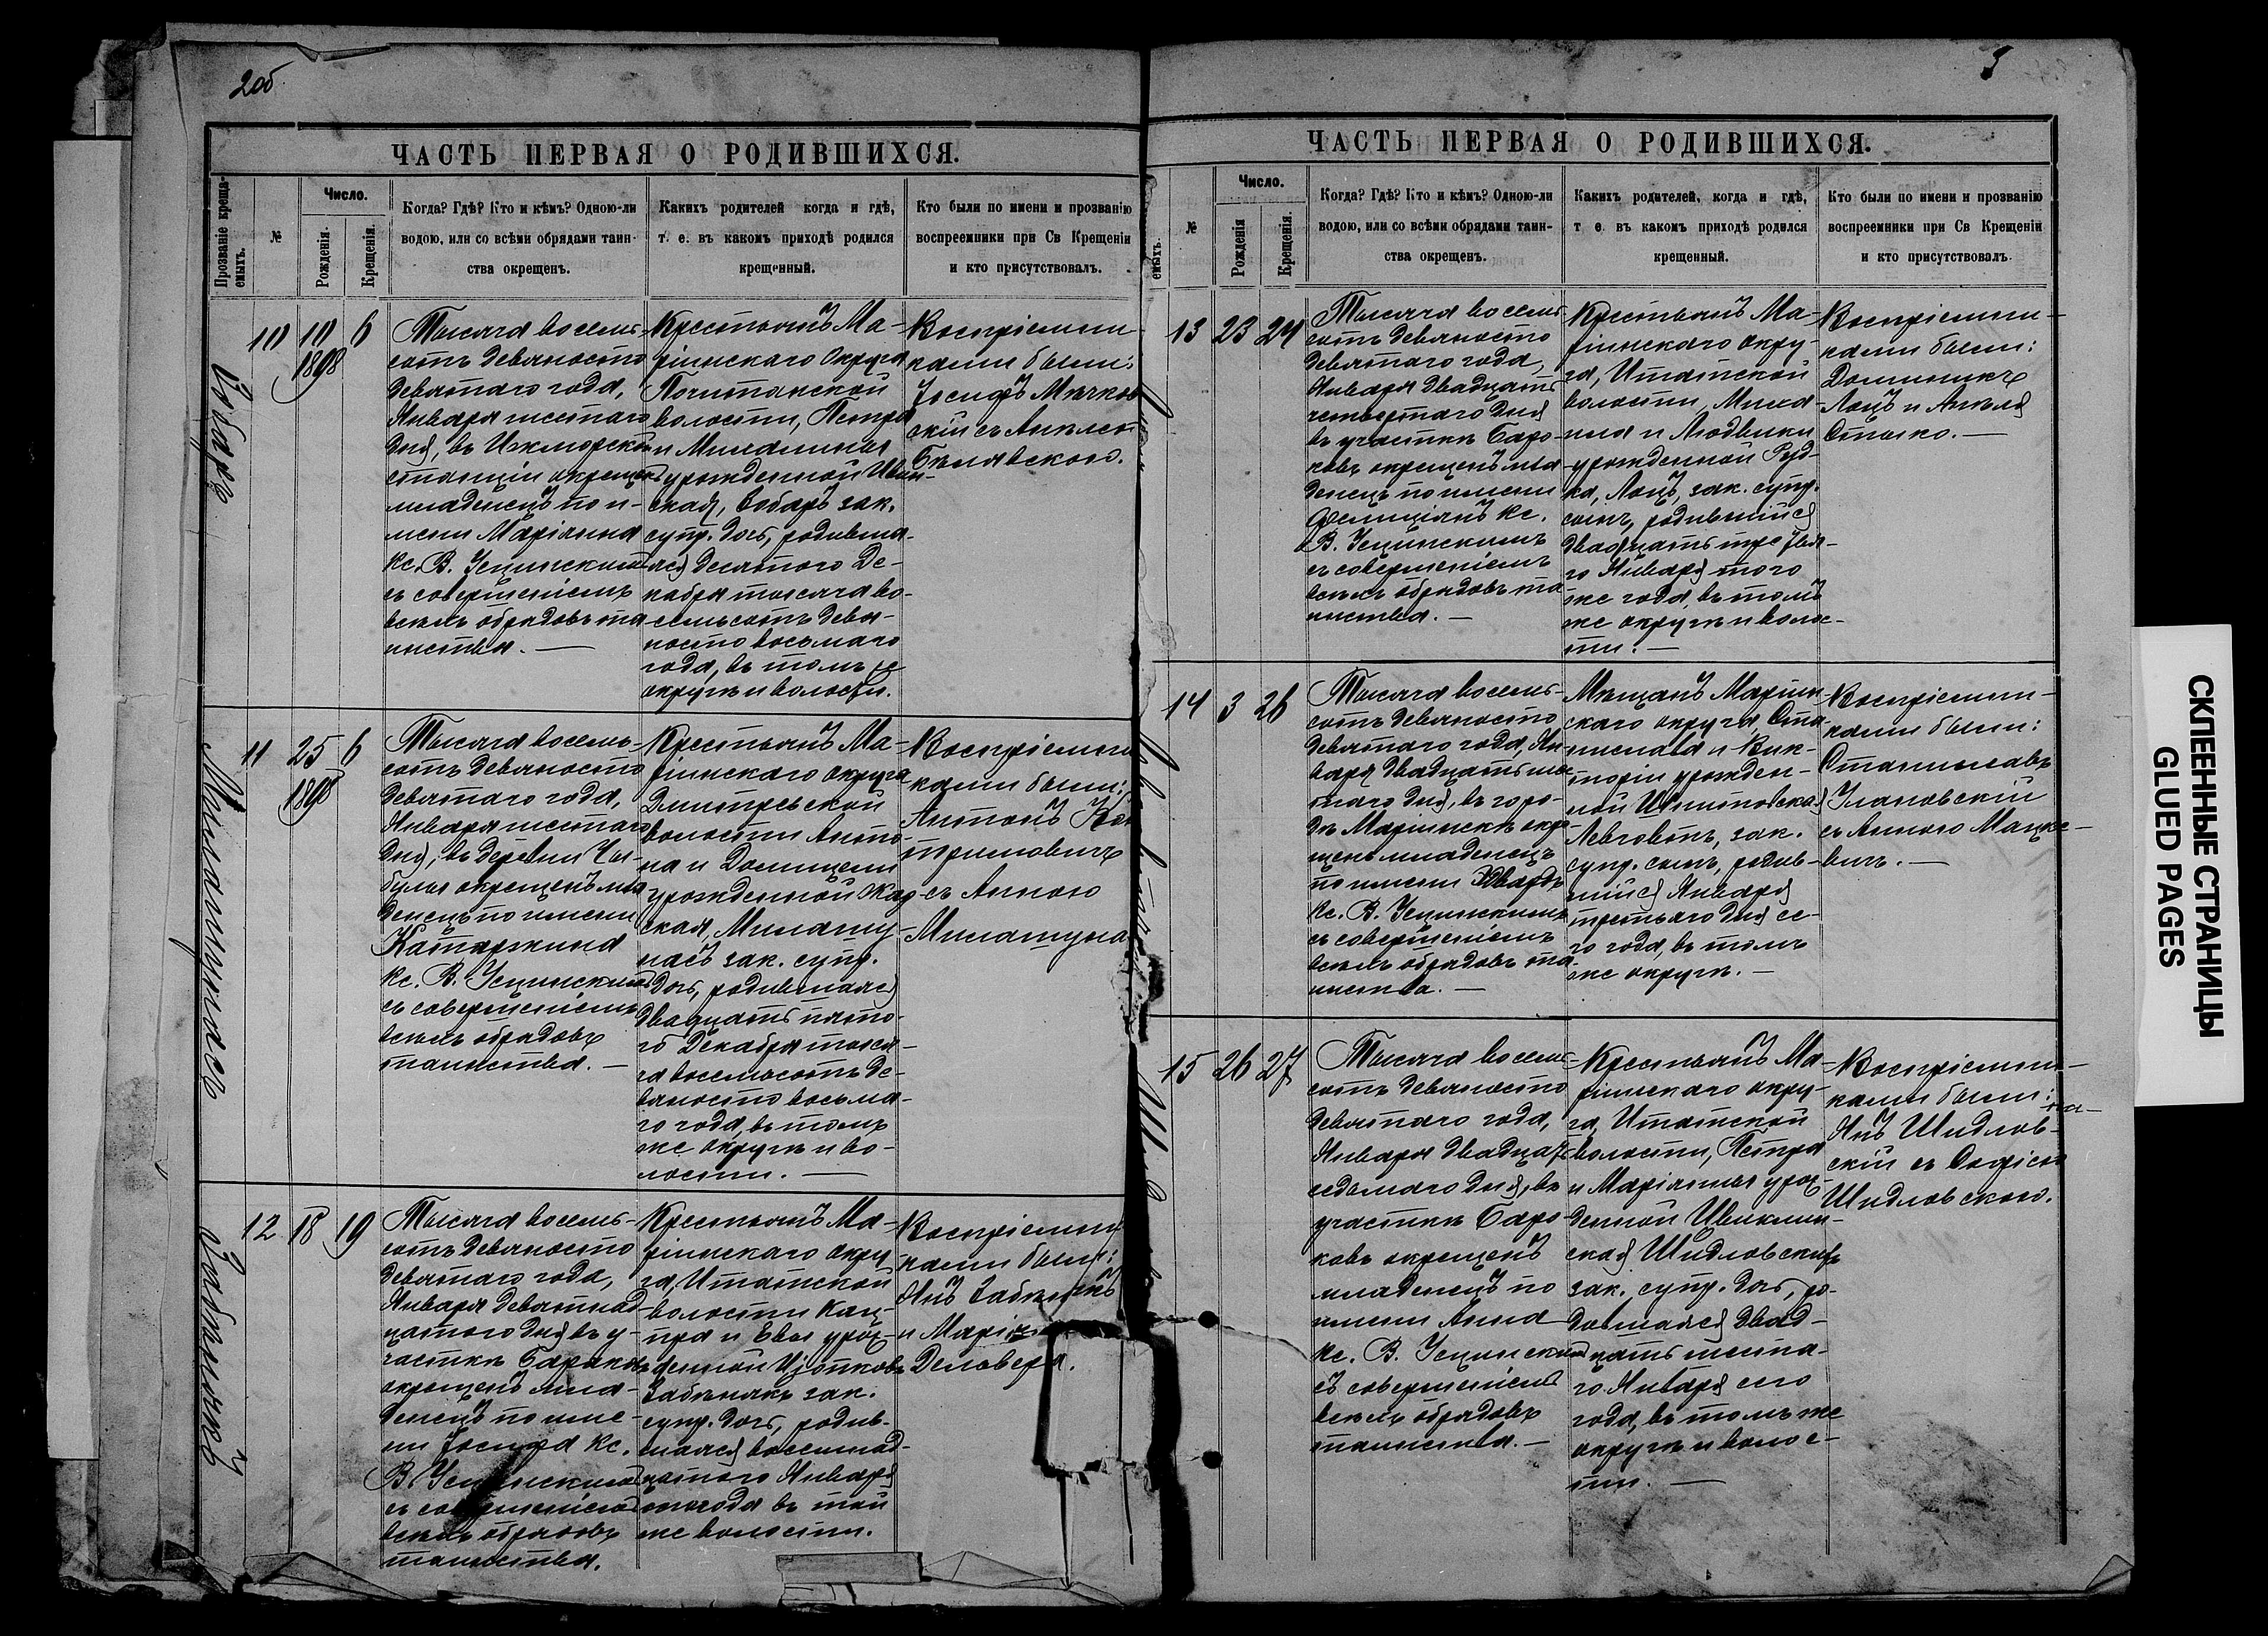 2об.
ЧАСТЬ ПЕРВАЯ О РОДИВШИХСЯ.
Прозваніе крещаемыхъ.
№
Число.
Рожденія.
Крещенія.
Когда? Гдѣ? Кто и кѣмъ? Одною-ли
водою, или со всѣми обрядами таин-
ства окрещенъ.
Каких родителей когда и гдѣ,
т. е. въ какомъ приходѣ родился
крещенный.
Кто были по имени и прозванію
воспреемники при Св Крещеніи
и кто присутствовалъ.
Бобаръ
10
10
1898
6
Тысяча восемь-
сотъ девяносто
девятаго года,
Января шестаго
дня, въ Ижморской
станціи окрещенъ
младенецъ по и-
мени Маріанна
Кс. В. Усцинскимъ
съ совершеніемъ
всѣхъ обрядовъ та
инства. —
Крестьянъ Ма-
ріинскаго округа
Почитанской
волости, Петра
и Миналины
урожденной
Бобаръ зак.
супр. дочь, родивша-
яся десятого Де-
кабря тысяча во-
семьсотъ девя-
носто восьмаго
года, въ томъ же
округѣ и волости.
Воспріемни
ками были:
Іосифъ Мячков
скій съ Анелею
Бѣлявскою.
11
25
1898
6
Тысяча восемь-
сотъ девяносто
девятаго года,
Января шестаго
дня, въ деревни Чи-
булы окрещенъ мла
денецъ по имени
Катаржина
Кс. В. Усцинскимъ
съ совершеніемъ
всѣхъ обрядовъ
таинства. —
Крестьянъ Ма-
ріинскаго округа
Дмитревской
волости Анто-
на и Доминели
урожденной
зак. супр.
дочь, родившаяся
двадцать пято-
го Декабря тыся-
ча восемьсотъ де-
вяносто восьма-
го года, въ томъ
же округѣ и во-
лости. —
Воспріемни
ками были:
Антонъ
съ Анною
12
18
19
Тысяча восемь-
сотъ девяносто
девятаго года,
Января девятнад
цатого дня въ у-
часткѣ Бароковъ
окрещенъ мла-
денецъ по име-
ни Іосифа Кс.
В. Усцинскимъ
съ совершеніемъ
всѣхъ обрядовъ
таинства.
Крестьянъ Ма-
ріинскаго окру
га, Итатской
волости Кац-
пра и Евы урож-
денной
Забѣнякъ зак.
супр. дочь, родив-
шаяся восемнад-
цатого Января
того года въ той
же волости.
Воспріемни
ками были:
Янъ Забѣнякъ
и Марія
3
ЧАСТЬ ПЕРВАЯ О РОДИВШИХСЯ.
емыхъ.
№
Число.
Рожденія
Крещенія.
Когда? Гдѣ? Кто и кѣмъ? Одною-ли
водою, или со всѣми обрядами таин-
ства окрещенъ.
Каких родителей, когда и гдѣ,
т е. въ какомъ приходѣ родился
крещенный.
Кто были по имени и прозванію
воспреемники при Св Крещеніи
и кто присутствовалъ.
13
23
24
Тысяча восемь
сотъ девяносто
девятаго года,
Января двадцать
четвертаго дня
въ участкѣ Баро-
ковъ окрещенъ мла
денецъ по имени
Фелиціянъ Кс.
В. Усцинскимъ
съ совершеніемъ
всѣхъ обрядовъ та
инства. —
Крестьянъ Ма-
ріинскаго окру-
га, Итатской
волости, Миха-
ила и Людвики
урожденной Руд-
ка, Лоцъ, зак. супр.
сынъ, родившійся
двадцать третья-
го Января того
же года, въ томъ
же округѣ и волос-
ти. —
Воспріемни-
ками были:
Доминикъ
Лоцъ и Анеля
Стыко. —
14
3
26
Тысяча восемь-
сотъ девяносто
девятаго года, Ян-
варя двадцать ше
стаго дня, въ горо-
дѣ Маріинскѣ окре
щенъ младенецъ
по имени Эдвардъ
Кс. В. Усцинскимъ
съ совершеніемъ
всѣхъ обрядовъ та-
инства. —
Мѣщанъ Маріин-
скаго округа Ста-
нислава и Вик-
торіи урожден-
ной
зак.
супр. сынъ, родив-
шійся Января
третьяго дня се-
го года, въ томъ
же округѣ. —
Воспріемни-
ками были:
Станиславъ
Улановскій
съ Анною Мацке-
вичъ. —
15
26
27
Тысяча восемь-
сотъ девяносто
девятаго года,
Января двадцать
седьмаго дня, въ
участкѣ Баро-
ковъ окрещенъ
младенецъ по
имени Анна
Кс. В. Усцинскимъ
съ совершеніемъ
всѣхъ обрядовъ
таинства. —
Крестьянъ Ма-
ріинскаго окру-
га, Итатской
волости, Петра
и Маріянны урож-
денной Цвиклин-
ская Шидловскихъ
зак. супр. дочь, ро-
дившаяся двад-
цать шеста-
го Января сего
года, въ томъ же
округѣ и волос-
ти. —
Воспріемни-
ками были:
Янъ Шидлов-
скій съ Софіею
Шидловскою.
СКЛЕЕННЫЕ СТРАНИЦЫ
GLUED PAGES